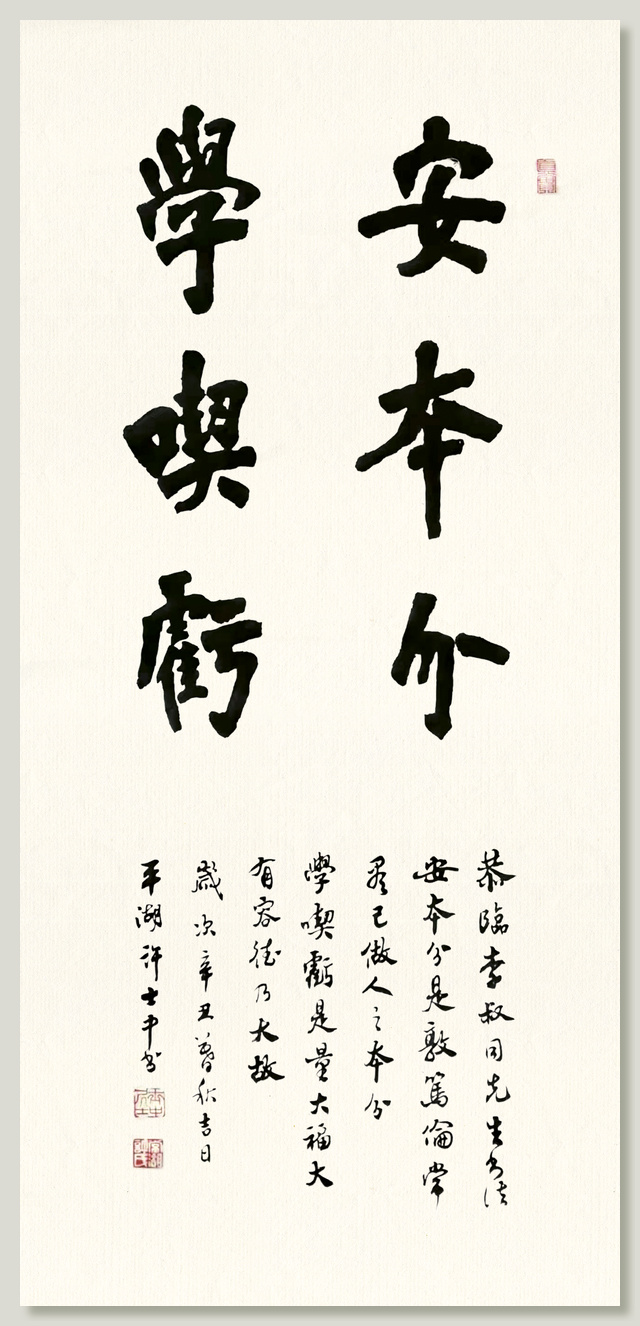 安本分
學喫虧
恭臨李叔同先生書法
安本分是敦篤倫常
盡己做人之本分
學喫虧是量大福大
有容德乃大故
歲次辛丑暮秋吉日
平湖許士中書